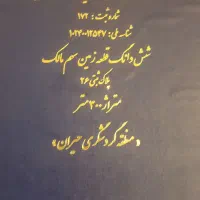 شماره ثبت: ۱۷۲
شناسه ملی: ۱۰۲۴۰۰۱۲۵۴۷
شش دانگ قطعه زمین سهم مالک
پلاک ثبتی ۲۶
متراژ ۳۰۰ متر
«منطقه گردشگری حیران»